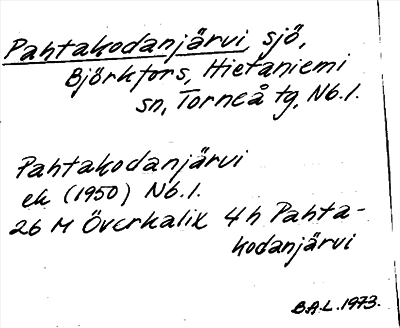 Pahtakodanjärvi, sjö,
Björkfors, Hietaniemi
sn, Torneå tg, Nb. l.
Pahtakodanjärvi
ek (1950) Nb. l.
26 M Överkalix 4h Pahta-
kodanjärvi
B.A.L. 1973.